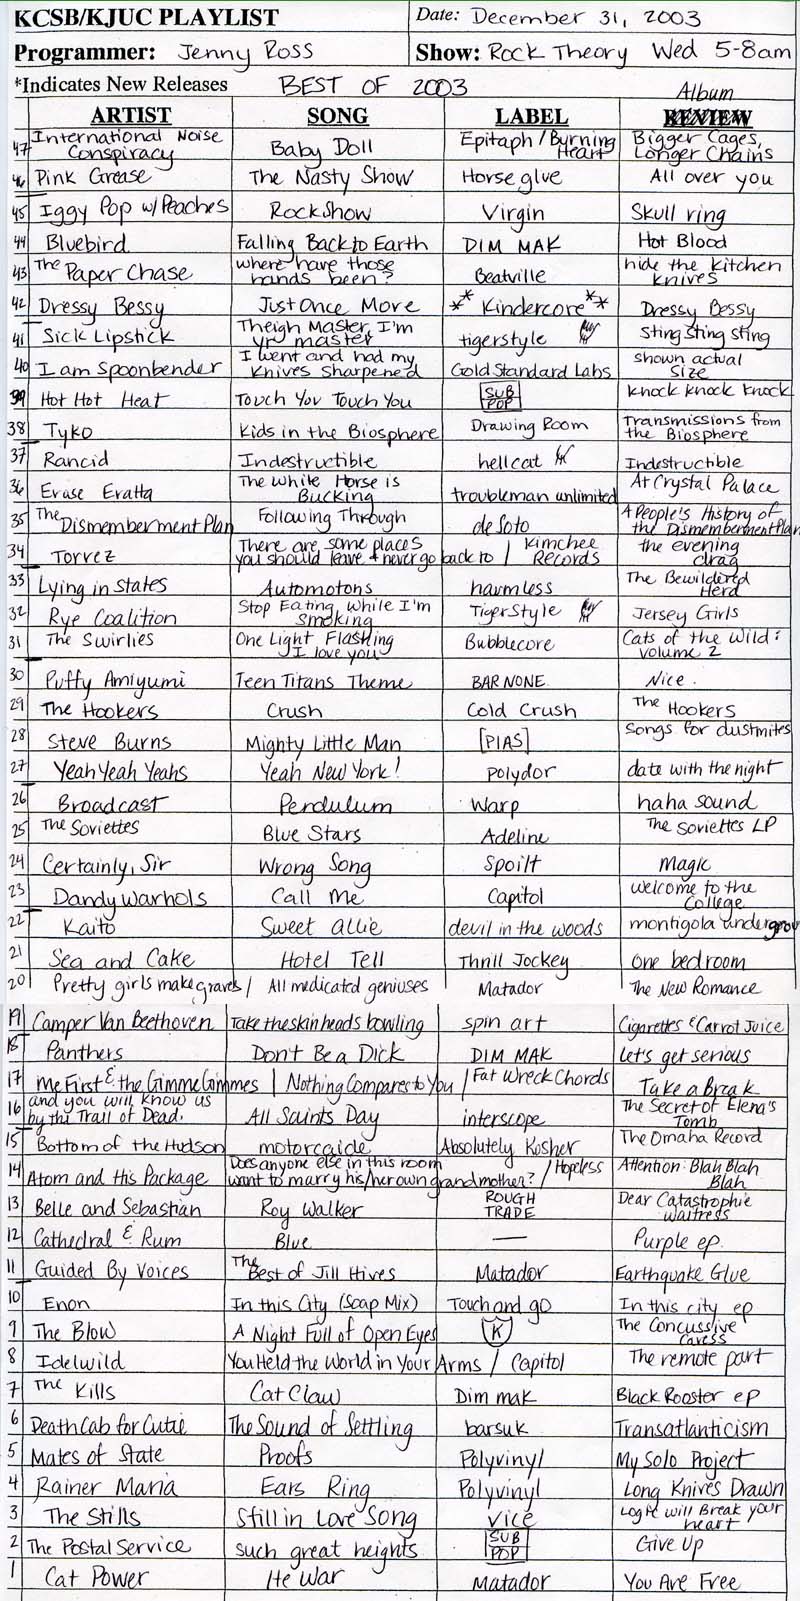 KCSB/KJUC PLAYLIST Date: December 31, 2003
Programmer: Jenny Ross Show: Rock Theory Wed 5-8am
*Indicates New Releases BEST OF 2003 Album
ARTIST SONG LABEL REVIEW
47 International Noise Conspiracy Baby Doll Epitaph / Burning Heart Bigger Cages, Longer Chains
46 Pink Grease The Nasty Show Horse glue All over you
45 Iggy Pop w/ Peaches Rock Show Virgin Skull ring
44 Bluebird Falling Back to Earth DIM MAK Hot Blood
43 The Paper Chase where have those hands been? Beatville hide the kitchen knives
42 Dressy Bessy Just Once More ** Kindercore ** Dressy Bessy
41 Sick Lipstick Theigh Master, I'm yr master tigerstyle Sting Sting Sting
40 I am Spoonbender I went and had my knives sharpened Gold Standard Labs shown actual size
39 Hot Hot Heat Touch You Touch You SUB POP Knock Knock Knock
38 Tyko Kids in the Biosphere Drawing Room Transmissions from the Biosphere
37 Rancid Indestructible hellcat Indestructible
36 Erase Eratta The White Horse is Bucking troubleman unlimited At Crystal Palace
35 The Dismemberment Plan Following Through de Soto A People's History of the Dismemberment Plan
34 Torrez There are some places you should leave + never go back to / Kimchee Records the evening drag
33 Lying in States Automotons harmless The Bewildered Herd
32 Rye Coalition Stop Eating While I'm Smoking TigerStyle Jersey Girls
31 The Swirlies One Light Flashing I love you Bubblecore Cats of the Wild: Volume 2
30 Puffy Amiyumi Teen Titans Theme BAR NONE Nice.
29 The Hookers Crush Cold Crush The Hookers
28 Steve Burns Mighty Little Man [PIAS] Songs for dustmites
27 Yeah Yeah Yeahs Yeah New York! polydor date with the night
26 Broadcast Pendulum Warp haha sound
25 The Soviettes Blue Stars Adeline The Soviettes LP
24 Certainly, Sir Wrong Song Spoilt Magic
23 Dandy Warhols Call Me Capitol Welcome to the College
22 Kaito Sweet allie devil in the woods montigola undergrou
21 Sea and Cake Hotel Tell Thrill Jockey One bedroom
20 Pretty girls make graves / All medicated geniuses Matador The New Romance
19 Camper Van Beethoven Take the skinheads bowling spin art Cigarettes & Carrot Juice
18 Panthers Don't Be a Dick DIM MAK Let's get serious
17 Me First & the Gimme Gimmes / Nothing Compares to You / Fat Wreck Chords Take a Break
16 and you will know us by the Trail of Dead. All Saints Day interscope The Secret of Elena's Tomb
15 Bottom of the Hudson motorcaide Absolutely Kosher The Omaha Record
14 Atom and His Package Does anyone else in this room want to marry his/her own grandmother? / Hopeless Attention: Blah Blah Blah
13 Belle and Sebastian Roy Walker ROUGH TRADE Dear Catastrophie waitress
12 Cathedral & Rum Blue — Purple ep.
11 Guided By Voices The Best of Jill Hives Matador Earthquake Glue
10 Enon In this City (Soap Mix) Touch and go In this city ep
9 The Blow A Night Full of Open Eyes K The Concussive Caress
8 Idelwild You Held the World in Your Arms / Capitol The remote part
7 The Kills Cat Claw Dim mak Black Rooster ep
6 Death Cab for Cutie The Sound of Settling barsuk Transatlanticism
5 Mates of State Proofs Polyvinyl My Solo Project
4 Rainer Maria Ears Ring Polyvinyl Long Knives Drawn
3 The Stills Still in Love Song Vice Logic will Break your heart
2 The Postal Service such great heights SUB POP Give Up
1 Cat Power He War Matador You Are Free